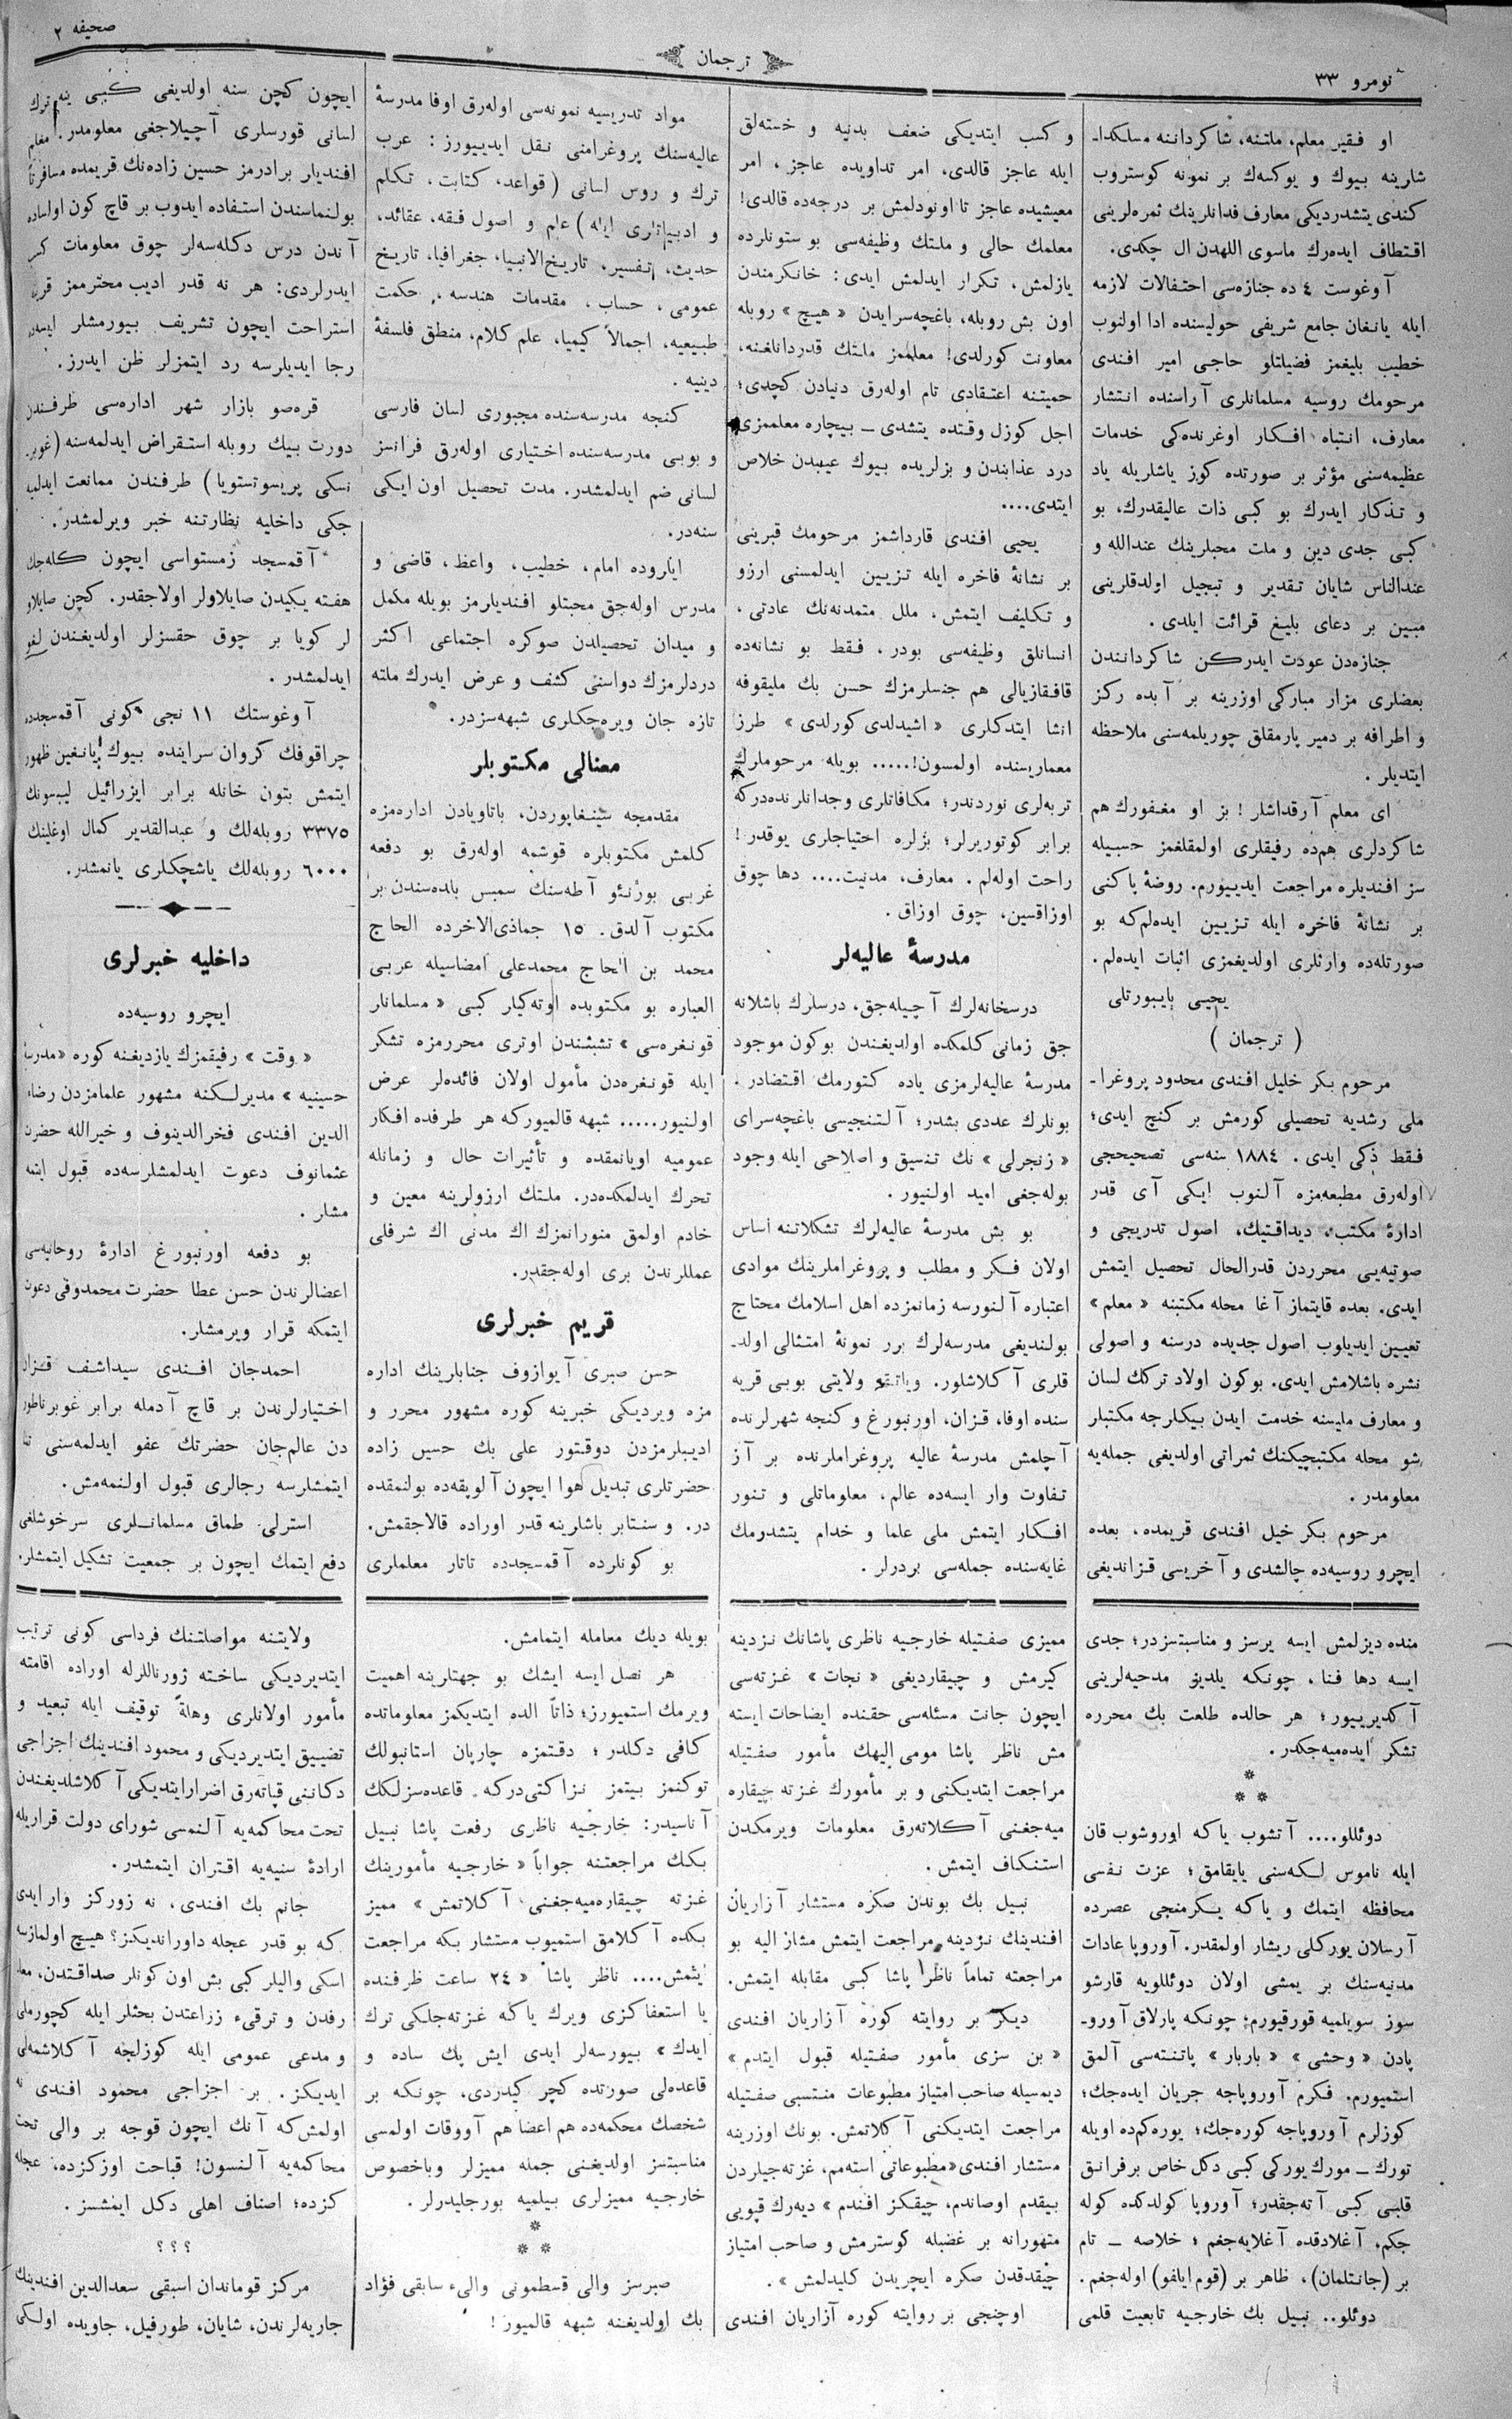 نومرو ٣٣
ترجمان
صحيفه ٢
او فقير معلم، ملتنه، شاكرداننه مسلكدا-
شارينه بيوك و يوكسەك بر نمونه كوستروب
كندى يتشدرديكى معارف فدانلرينك ثمرەلرينى
اقتطاف ايدەرك ماسوى اللهدن ال چكدى.
آوغوست ٤ ده جنازەسى احتفالات لازمه
ايله يانغان جامع شريفى حوليسنده ادا اولنوب
خطيب بليغمز فضيلتلو حاجى امير افندى
مرحومك روسيه مسلمانلرى آراسنده انتشار
معارف، انتباه افكار اوغرندەكى خدمات
عظيمەسنى مؤثر بر صورتده كوز ياشلريله ياد
و تذكار ايدرك بو كبى ذات عاليقدرك، بو
كبى جدى دين و ملت محبلرينك عندالله و
عندالناس شايان تقدير و تبجيل اولدقلرينى
مبين بر دعاى بليغ قرائت ايلدى.
جنازەدن عودت ايدركن شاكرداندن
بعضلرى مزار مباركى اوزرينه بر آبده ركز
و اطرافه بر دمير پارمقلق چوريلمەسنى ملاحظه
ايتديلر.
اى معلم آرقداشلر! بز او مغفورك هم
شاكردلرى هم‌ده رفيقلرى اولمقلغمز حسبيله
سز افنديلره مراجعت ايدييورم. روضۀ پاكنى
بر نشانۀ فاخره ايله تزيين ايدەلم‌كه بو
صورتله‌ده وارثلرى اولديغمزى اثبات ايدەلم.
يحيى بايبورتلى
( ترجمان )
مرحوم بكر خليل افندى محدود پروغرا-
ملى رشديه تحصيلى كورمش بر كنج ايدى؛
فقط ذكى ايدى. ١٨٨٤ سنەسى تصحيحجى
اولەرق مطبعەمزه آلنوب ايكى آى قدر
ادارۀ مكتب، ديداقتيك، اصول تدريجى و
صوتيەيى محرردن قدرالحال تحصيل ايتمش
ايدى. بعده قايتماز آغا محله مكتبنه « معلم »
تعيين ايديلوب اصول جديده درسنه و اصولى
نشره باشلامش ايدى. بوكون اولاد تركك لسان
و معارف مليسنه خدمت ايدن بيكلرجه مكتبلر
شو محله مكتبچيكنك ثمراتى اولديغى جملەيه
معلومدر.
مرحوم بكر خيل افندى قريمده، بعده
ايچرو روسيەده چالشدى و آخريسى قزانديغى
و كسب ايتديكى ضعف بدنيه و خستەلق
ايله عاجز قالدى، امر تداويده عاجز، امر
معيشيده عاجز تا اونودلمش بر درجەده قالدى!
معلمك حالى و ملتك وظيفەسى بو ستونلرده
يازلمش، تكرار ايدلمش ايدى: خانكرمندن
اون بش روبله، باغچەسرايدن « هيچ » روبله
معاونت كورلدى! معلمز ملتك قدردانلغنه،
حميتنه اعتقادى تام اولەرق دنيادن كچدى؛
اجل كوزل وقتده يتشدى — بيچاره معلممزى
درد عذابندن و بزلريده بيوك عيبدن خلاص
ايتدى....
يحيى افندى قارداشمز مرحومك قبرينى
بر نشانۀ فاخره ايله تزيين ايدلمسنى ارزو
و تكليف ايتمش. ملل متمدنەنك عادتى،
انسانلق وظيفەسى بودر، فقط بو نشانەده
قافقازيالى هم جنسلرمزك حسن بك مليقوفه
انشا ايتدكلرى « اشيدلدى كورلدى » طرز
معماريسنده اولمسون!..... بويله مرحوملرك
تربەلرى نوردندر؛ مكافاتلرى وجدانلرنده‌دركه
برابر كوتوريرلر؛ بزلره احتياجلرى يوقدر!
راحت اولەلم. معارف، مدنيت.... دها چوق
اوزاقسين، چوق اوزاق.
مدرسۀ عاليەلر
درسخانەلرك آچيلەجق، درسلرك باشلانه
جق زمانى كلمكده اولديغندن بوكون موجود
مدرسۀ عاليەلرمزى ياده كتورمك اقتضادر.
بونلرك عددى بشدر؛ آلتنجيسى باغچەسراى
« زنجرلى » نك تنسيق و اصلاحى ايله وجود
بولەجغى اميد اولنيور.
بو بش مدرسۀ عاليەلرك تشكلاتنه اساس
اولان فكر و مطلب و پروغراملرينك موادى
اعتباره آلنورسه زمانمزده اهل اسلامك محتاج
بولنديغى مدرسەلرك برر نمونۀ امتثالى اولد-
قلرى آكلاشلور. وياتقه ولايتى بوبى قريه
سنده اوفا، قزان، اورنبورغ و كنجه شهرلرنده
آچلمش مدرسۀ عاليه پروغراملرنده بر آز
تفاوت وار ايسەده عالم، معلوماتلى و تنور
افكار ايتمش ملى علما و خدام يتشدرمك
غايەسنده جملەسى بردرلر.
مواد تدريسيه نمونەسى اولەرق اوفا مدرسۀ
عاليەسنك پروغرامنى نقل ايدييورز: عرب
ترك و روس لسانى ( قواعد، كتابت، تكلم
و ادبياتلرى ايله ) علم و اصول فقه، عقائد،
حديث، تفسير، تاريخ‌الانبيا، جغرافيا، تاريخ
عمومى، حساب، مقدمات هندسه، حكمت
طبيعيه، اجمالاً كيميا، علم كلام، منطق فلسفۀ
دينيه.
كنجه مدرسەسنده مجبورى لسان فارسى
و بوبى مدرسەسنده اختيارى اولەرق فرانسز
لسانى ضم ايدلمشدر. مدت تحصيل اون ايكى
سنەدر.
ايلروده امام، خطيب، واعظ، قاضى و
مدرس اولەجق محبتلو افنديلرمز بويله مكمل
و ميدان تحصيلدن صوكره اجتماعى اكثر
دردلرمزك دواسنى كشف و عرض ايدرك ملته
تازه جان ويرەجكلرى شبهەسزدر.
معنالى مكتوبلر
مقدمجه سينغاپوردن، باتاويادن ادارەمزه
كلمش مكتوبلره قوشمه اولەرق بو دفعه
غربى بورنئو آطەسنك سمبس بلدەسندن بر
مكتوب آلدق. ١٥ جماذى‌الاخرده الحاج
محمد بن الحاج محمدعلى امضاسيله عربى
العباره بو مكتوبده اوتەكيلر كبى « مسلمانلر
قونغرەسى » تشبثندن اوترى محررمزه تشكر
ايله قونغرەدن مأمول اولان فائدەلر عرض
اولنيور..... شبهه قالميوركه هر طرفده افكار
عموميه اويانمقده و تأثيرات حال و زمانله
تحرك ايدلمكدەدر. ملتك ارزولرينه معين و
خادم اولمق منورانمزك اك مدنى اك شرفلى
عمللرندن برى اولەجقدر.
قريم خبرلرى
حسن صبرى آيوازوف جنابلرينك اداره
مزه ويرديكى خبرينه كوره مشهور محرر و
اديبلرمزدن دوقتور على بك حسين زاده
حضرتلرى تبديل هوا ايچون آلوپقەده بولنمقده
در. و سنتابر باشلرينه قدر اوراده قالاجقمش.
بو كونلرده آقمسجدده تاتار معلملرى
ايچون كچن سنه اولديغى كبى ينه ترك
لسانى قورسلرى آچيلاجغى معلومدر. معلم
افنديلر برادرمز حسين زادەنك قريمده مسافرتاً
بولنماسندن استفاده ايدوب بر قاچ كون اولساده
آندن درس دكلەسەلر چوق معلومات كسب
ايدرلردى: هر نه قدر اديب محترممز قريمه
استراحت ايچون تشريف بيورمشلر ايسەده
رجا ايديلرسه رد ايتمزلر ظن ايدرز.
قرەصو بازار شهر ادارەسى طرفندن
دورت بيك روبله استقراض ايدلمەسنه (غوبر-
نسكى پريسوتستويا) طرفندن ممانعت ايدلميه
جكى داخليه نظارتنه خبر ويرلمشدر.
آقمسجد زمستواسى ايچون كلەجك
هفته يكيدن صايلاولر اولاجقدر. كچن صايلاو
لر كويا بر چوق حقسزلر اولديغندن لغو
ايدلمشدر.
آوغوستك ١١ نجى كونى آقمسجدده
چراقوفك كروان سراينده بيوك يانغين ظهور
ايتمش بتون خانله برابر ايزرائيل ليبسونك
٣٣٧٥ روبلەلك و عبدالقدير كمال اوغلينك
٦٠٠٠ روبلەلك ياشچكلرى يانمشدر.
داخليه خبرلرى
ايچرو روسيەده
« وقت » رفيقمزك يازديغنه كوره «مدرسۀ
حسينيه » مديرلكنه مشهور علمامزدن رضاء
الدين افندى فخرالدينوف و خيرالله حضرت
عثمانوف دعوت ايدلمشلرسەده قبول ايتمه
مشلر.
بو دفعه اورنبورغ ادارۀ روحانيەسى
اعضالرندن حسن عطا حضرت محمدوفى دعوت
ايتمكه قرار ويرمشلر.
احمدجان افندى سيداشف قزان
اختيارلرندن بر قاچ آدمله برابر غوبرناطور
دن عالم‌جان حضرتك عفو ايدلمەسنى تمنا
ايتمشلرسه رجالرى قبول اولنمەمش.
استرلى طماق مسلمانلرى سرخوشلغى
دفع ايتمك ايچون بر جمعيت تشكيل ايتمشلر.
منده ديزلمش ايسه يرسز و مناسبتسزدر؛ جدى
ايسه دها فنا، چونكه يلديز مدحيەلرينى
آكديرييور؛ هر حالده طلعت بك محرره
تشكر ايدەميەجكدر.
* * *
دوئللو.... آتشوب ياكه اوروشوب قان
ايله ناموس لكەسنى يايقامق؛ عزت نفسى
محافظه ايتمك و ياكه يكرمنجى عصرده
آرسلان يوركلى ريشار اولمقدر. آوروپا عادات
مدنيەسنك بر يمشى اولان دوئللويه قارشو
سوز سويلميه قورقيورم؛ چونكه پارلاق آورو-
پادن « وحشى » « باربار » پاتنتەسى آلمق
استميورم. فكرم آوروپاجه جريان ايدەجك؛
كوزلرم آوروپاجه كورەجك؛ يورەكم‌ده اويله
تورك — مورك يوركى كبى دكل خاص برفرانق
قلبى كبى آتەجقدر؛ آوروپا كولدكده كوله
جكم، آغلادقده آغلايەجغم؛ خلاصه — تام
بر (جانتلمان)، ظاهر بر (قوم ايلفو) اولەجغم.
دوئلو.. نبيل بك خارجيه تابعيت قلمى
مميزى صفتيله خارجيه ناظرى پاشانك نزدينه
كيرمش و چيقارديغى « نجات » غزتەسى
ايچون جانت مسئلەسى حقنده ايضاحات ايسته
مش ناظر پاشا مومى إليهك مأمور صفتيله
مراجعت ايتديكنى و بر مأمورك غزته چيقاره
ميەجغنى آكلاتەرق معلومات ويرمكدن
استنكاف ايتمش.
نبيل بك بوندن صكره مستشار آزاريان
افندينك نزدينه مراجعت ايتمش مشار اليه بو
مراجعته تماماً ناظر پاشا كبى مقابله ايتمش.
ديكر بر روايته كوره آزاريان افندى
« بن سزى مأمور صفتيله قبول ايتدم »
ديمسيله صاحب امتياز مطبوعات منتسبى صفتيله
مراجعت ايتديكنى آكلاتمش. بونك اوزرينه
مستشار افندى «مطبوعاتى استەمم، غزتەجيلردن
بيقدم اوصاندم، چيقكز افندم » ديەرك قپويى
متهورانه بر غضبله كوسترمش و صاحب امتياز
چيقدقدن صكره ايچريدن كليدلمش ».
اوچنجى بر روايته كوره آزاريان افندى
بويله ديك معامله ايتمامش.
هر نصل ايسه ايشك بو جهتلرينه اهميت
ويرمك استميورز؛ ذاتاً الده ايتديكمز معلوماتده
كافى دكلدر؛ دقتمزه چارپان استانبولك
توكنمز بيتمز نزاكتى‌دركه قاعدەسزلكك
آناسيدر: خارجيه ناظرى رفعت پاشا نبيل
بكك مراجعتنه جواباً « خارجيه مأمورينك
غزته چيقارەميەجغنى آكلاتمش » مميز
بكده آكلامق استميوب مستشار بكه مراجعت
ايتمش.... ناظر پاشا « ٢٤ ساعت ظرفنده
يا استعفاكزى ويرك ياكه غزتەجلكى ترك
ايدك » بيورسەلر ايدى ايش پك ساده و
قاعدەلى صورتده كچر كيدردى، چونكه بر
شخصك محكمەده هم اعضا هم آووقات اولمسى
مناسبتسز اولديغنى جمله مميزلر وباخصوص
خارجيه مميزلرى بيلميه بورجليدرلر.
* * *
صبرسز والى قسطمونى والىء سابقى فؤاد
بك اولديغنه شبهه قالميور!
ولايتنه مواصلتنك فرداسى كونى ترتيب
ايتديرديكى ساخته ژورناللرله اوراده اقامته
مأمور اولانلرى وهلةً توقيف ايله تبعيد و
تضييق ايتديرديكى و محمود افندينك اجزاجى
دكاننى قپاتەرق اضرارايتديكى آكلاشلديغندن
تحت محاكمەيه آلنمسى شوراى دولت قراريله
ارادۀ سنيەيه اقتران ايتمشدر.
جانم بك افندى، نه زوركز وار ايدى
كه بو قدر عجله داوراندیكز؟ هيچ اولمازسه
اسكى واليلر كبى بش اون كونلر صداقتدن، معا-
رفدن و ترقىء زراعتدن بحثلر ايله كچورملى
و مدعى عمومى ايله كوزلجه آكلاشمەلى
ايديكز. بر اجزاجى محمود افندى نه
اولمش‌كه آنك ايچون قوجه بر والى تحت
محاكمەيه آلنسون! قباحت اوزكزده، عجله
كزده؛ اصناف اهلى دكل ايمشسز.
؟ ؟ ؟
مركز قوماندان اسبقى سعدالدين افندينك
جاريەلرندن، شايان، طورفيل، جاويده اولكى